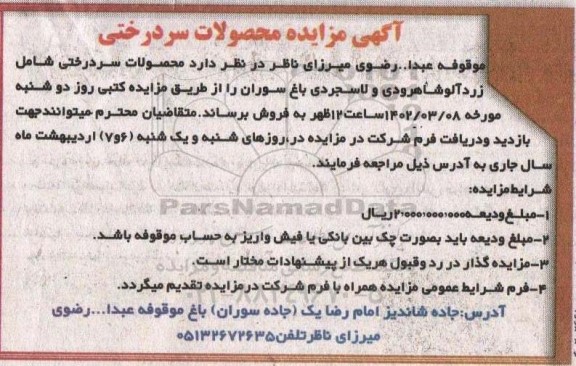 آگهی مزایده محصولات سردرختی
موقوفه عبدا..رضوی میرزای ناظر در نظر دارد محصولات سردرختی شامل
زردآلوشاهرودی و لاسجردی باغ سوران را از طریق مزایده کتبی روز دو شنبه
مورخه ۱۴۰۲/۰۳/۰۸ساعت۱۲ظهر به فروش برساند.متقاضیان محترم میتوانندجهت
بازدید ودریافت فرم شرکت در مزایده در,روزهای شنبه و یک شنبه (۶و۷) اردیبهشت ماه
سال جاری به آدرس ذیل مراجعه فرمایند.
شرایط‌مزایده:
۱-مبلغ‌ودیعه۲۰۰۰۰۰۰۰۰۰۰ریال
ParsNamadData
۲-مبلغ ودیعه باید بصورت چک بین بانکی یا فیش واریز به حساب موقوفه باشد.
۳-مزایده گذار در رد وقبول هریک از پیشنهادات مختار است.
۴-فرم شرایط عمومی مزایده همراه با فرم شرکت درمزایده تقدیم میگردد.
آدرس:جاده شاندیز امام رضا یک (جاده سوران) باغ موقوفه عبدا...رضوی
میرزای ناظرتلفن۰۵۱۳۲۶۷۲۶۳۵